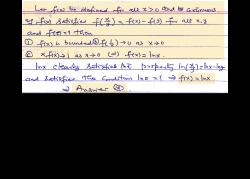 Let f(x) be defined for all x > 0 and be continuous
if f(x) satisfies f(x/y) = f(x) - f(y) for all x, y
and f(e) = 1 then
① f(x) is bounded ② f(1/x) → 0 as x → 0
③ x f(x) → 1 as x → 0 ④ f(x) = ln x
ln x clearly satisfies the property ln(x/y) = ln x - ln y
and satisfies the condition ln e = 1 → f(x) = ln x
→ Answer ④